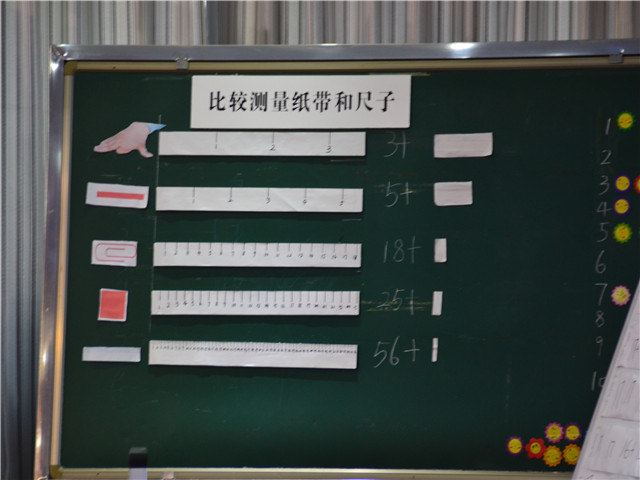 比较测量纸带和尺子
1 2 3
3+
1 2 3 4 5
5+
18+
25+
56+
1
2
3
4
5
6
7
8
9
10